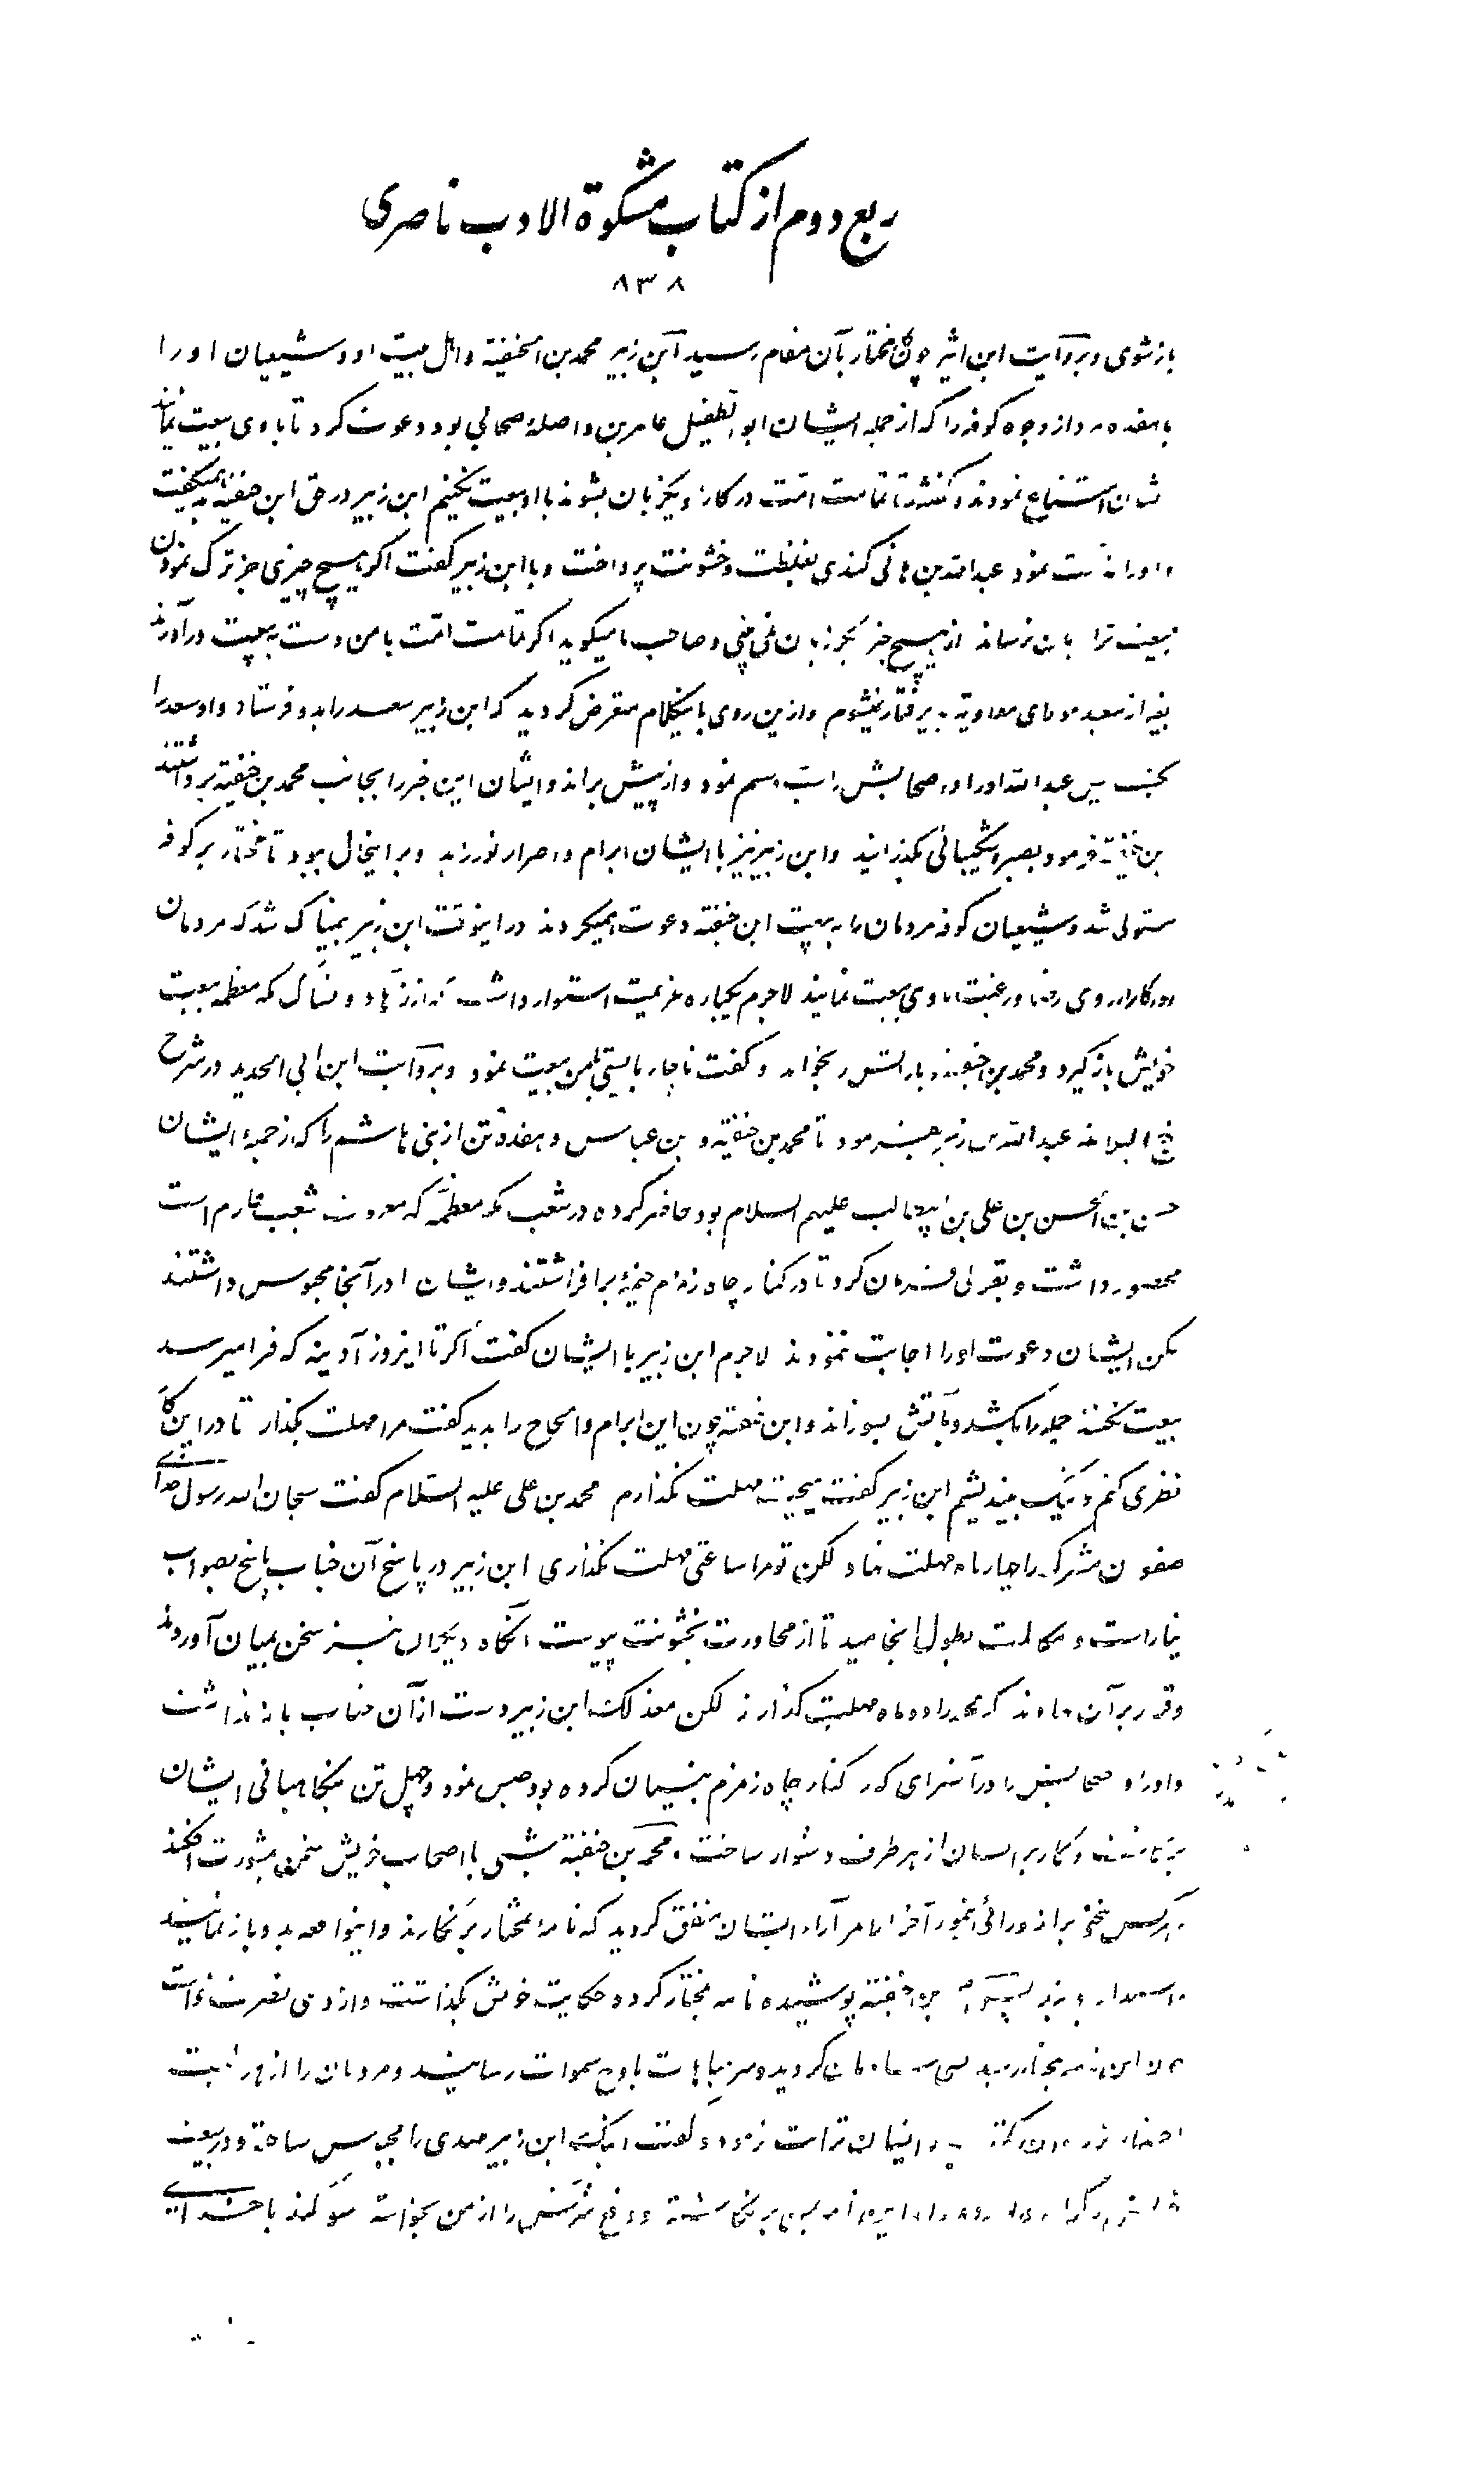 ربع دوم از کتاب مشکوة الادب ناصری
۸۳۸
باز شوی و بروایت ابن اثیر چون مختار بآن مقام رسید ابن زبیر محمد بن الحنفیة و اهل بیت او و شیعیان او را
با هفده مرد از وجوه کوفه را که از جمله ایشان ابو الطفیل عامر بن واصلهٔ صحابی بود دعوت کرد تا با وی بیعت نمایند
امتناع نمودند و گفتند تا تمامت امت در کار او یکزبان نشوند با او بیعت نکنیم ابن زبیر در حق ابن حنفیه بد همیگفت
و او را نمود عبدالله بن هانی کندی بغلظت و خشونت پرداخت و با ابن زبیر گفت اگر هیچ چیزی جز ترک نمودن
بیعت ترا زیان نرساند از هیچ چیز دیگر زیان نمی بینی و صاحب ما میگوید اگر تمامت امت با من دست به بیعت درآورند
بغیر از سعد مولای معاویه نپذیرفتار نیشوم و ازین روی باینکلام متعرض گردید که ابن زبیر سعد را بدو فرستاد و او سعد را
بکشت پس عبدالله او را و اصحابش را شتم نمود و از پیش براند و ایشان این خبر را بجانب محمد بن حنفیه برداشتند
بن حنفیه فرمود بصبر و شکیبائی بگذرانید و ابن زبیر نیز با ایشان ابرام و اصرار نورزید و بر اینحال ببود تا مختار بر کوفه
مستولی شد و شیعیان کوفه مردمان را به بیعت ابن حنفیه دعوت همیکردند در اینوقت ابن زبیر بیمناک شد که مردمان
روزگار از روی رضا و رغبت با وی بیعت نمایند لاجرم یکباره عزیمت استوار داشت که از زهاد و نساک مکه معظمه بیعت
خویش بازگیرد و محمد بن حنفیه و یارانش را بخواند و گفت ناچار بایستی با من بیعت نمود و بروایت ابن ابی الحدید در شرح
نهج البلاغه عبدالله بن زبیر بفرمود تا محمد بن حنفیه و بن عباس و هفده تن از بنی هاشم را که از جملهٔ ایشان
حسن بن الحسن بن علی بن ابیطالب علیهم السلام بود حاضر کرده در شعب مکه معظمه که معروف بشعب عارم است
محصور داشت و بقولی فرمان کرد تا در کنار چاه زمزم خیمهٔ برافراشتند و ایشان را در آنجا محبوس داشتند
لکن ایشان دعوت او را اجابت ننمودند لاجرم ابن زبیر با ایشان گفت اگر تا اینروز آدینه که فرا میرسد
بیعت نکنند جمله را بکشد و بآتش بسوزاند و ابن حنفیه چون این ابرام و الحاح را بدید گفت مرا مهلت بگذار تا در این کار
نظری کنم و نیک بیندیشم ابن زبیر گفت هیچت مهلت نگذارم محمد بن علی علیه السلام گفت سبحان الله رسول خدای
صفوان مشرک را چهار ماه مهلت نهاد لکن تو مرا ساعتی مهلت نگذاری ابن زبیر در پاسخ آن جناب پاسخ بصواب
نیاراست و مکالمت بطول انجامید تا از محاورت بخشونت پیوست آنگاه دیگران نیز سخن بمیان آوردند
و قرار بر آن نهادند که محمد را دو ماه مهلت گذارند لکن معذلک ابن زبیر دست از آن جناب باز نداشت
و او را و اصحابش را در آنسرای که در کنار چاه زمزم بنیان کرده بود حبس نمود و چهل تن بنگاهبانی ایشان
برگماشت و کار بر ایشان از هر طرف دشوار ساخت محمد بن حنفیه شبی با اصحاب خویش سخن بمشورت افکند
هر کس سخنی براند و رائی بنمود آخر الامر آراء ایشان متفق گردید که نامه بمختار برنگارند و اینواقعه بدو باز نمایند
حنفیه پوشیده نامه بمختار کرده حکایت خویش بگذاشت و از وی نصرت خواست
چون این نامه بمختار رسید شادمان گردید و سر مباهات باوج سموات رسانید و مردمان را از هر
قرائت فرمود و گفت اینک ابن زبیر مهدی را محبوس ساخته و در بیعت
نامه بمن برنگاشته و دفع شرش را از من بخواسته سوگند با خدای